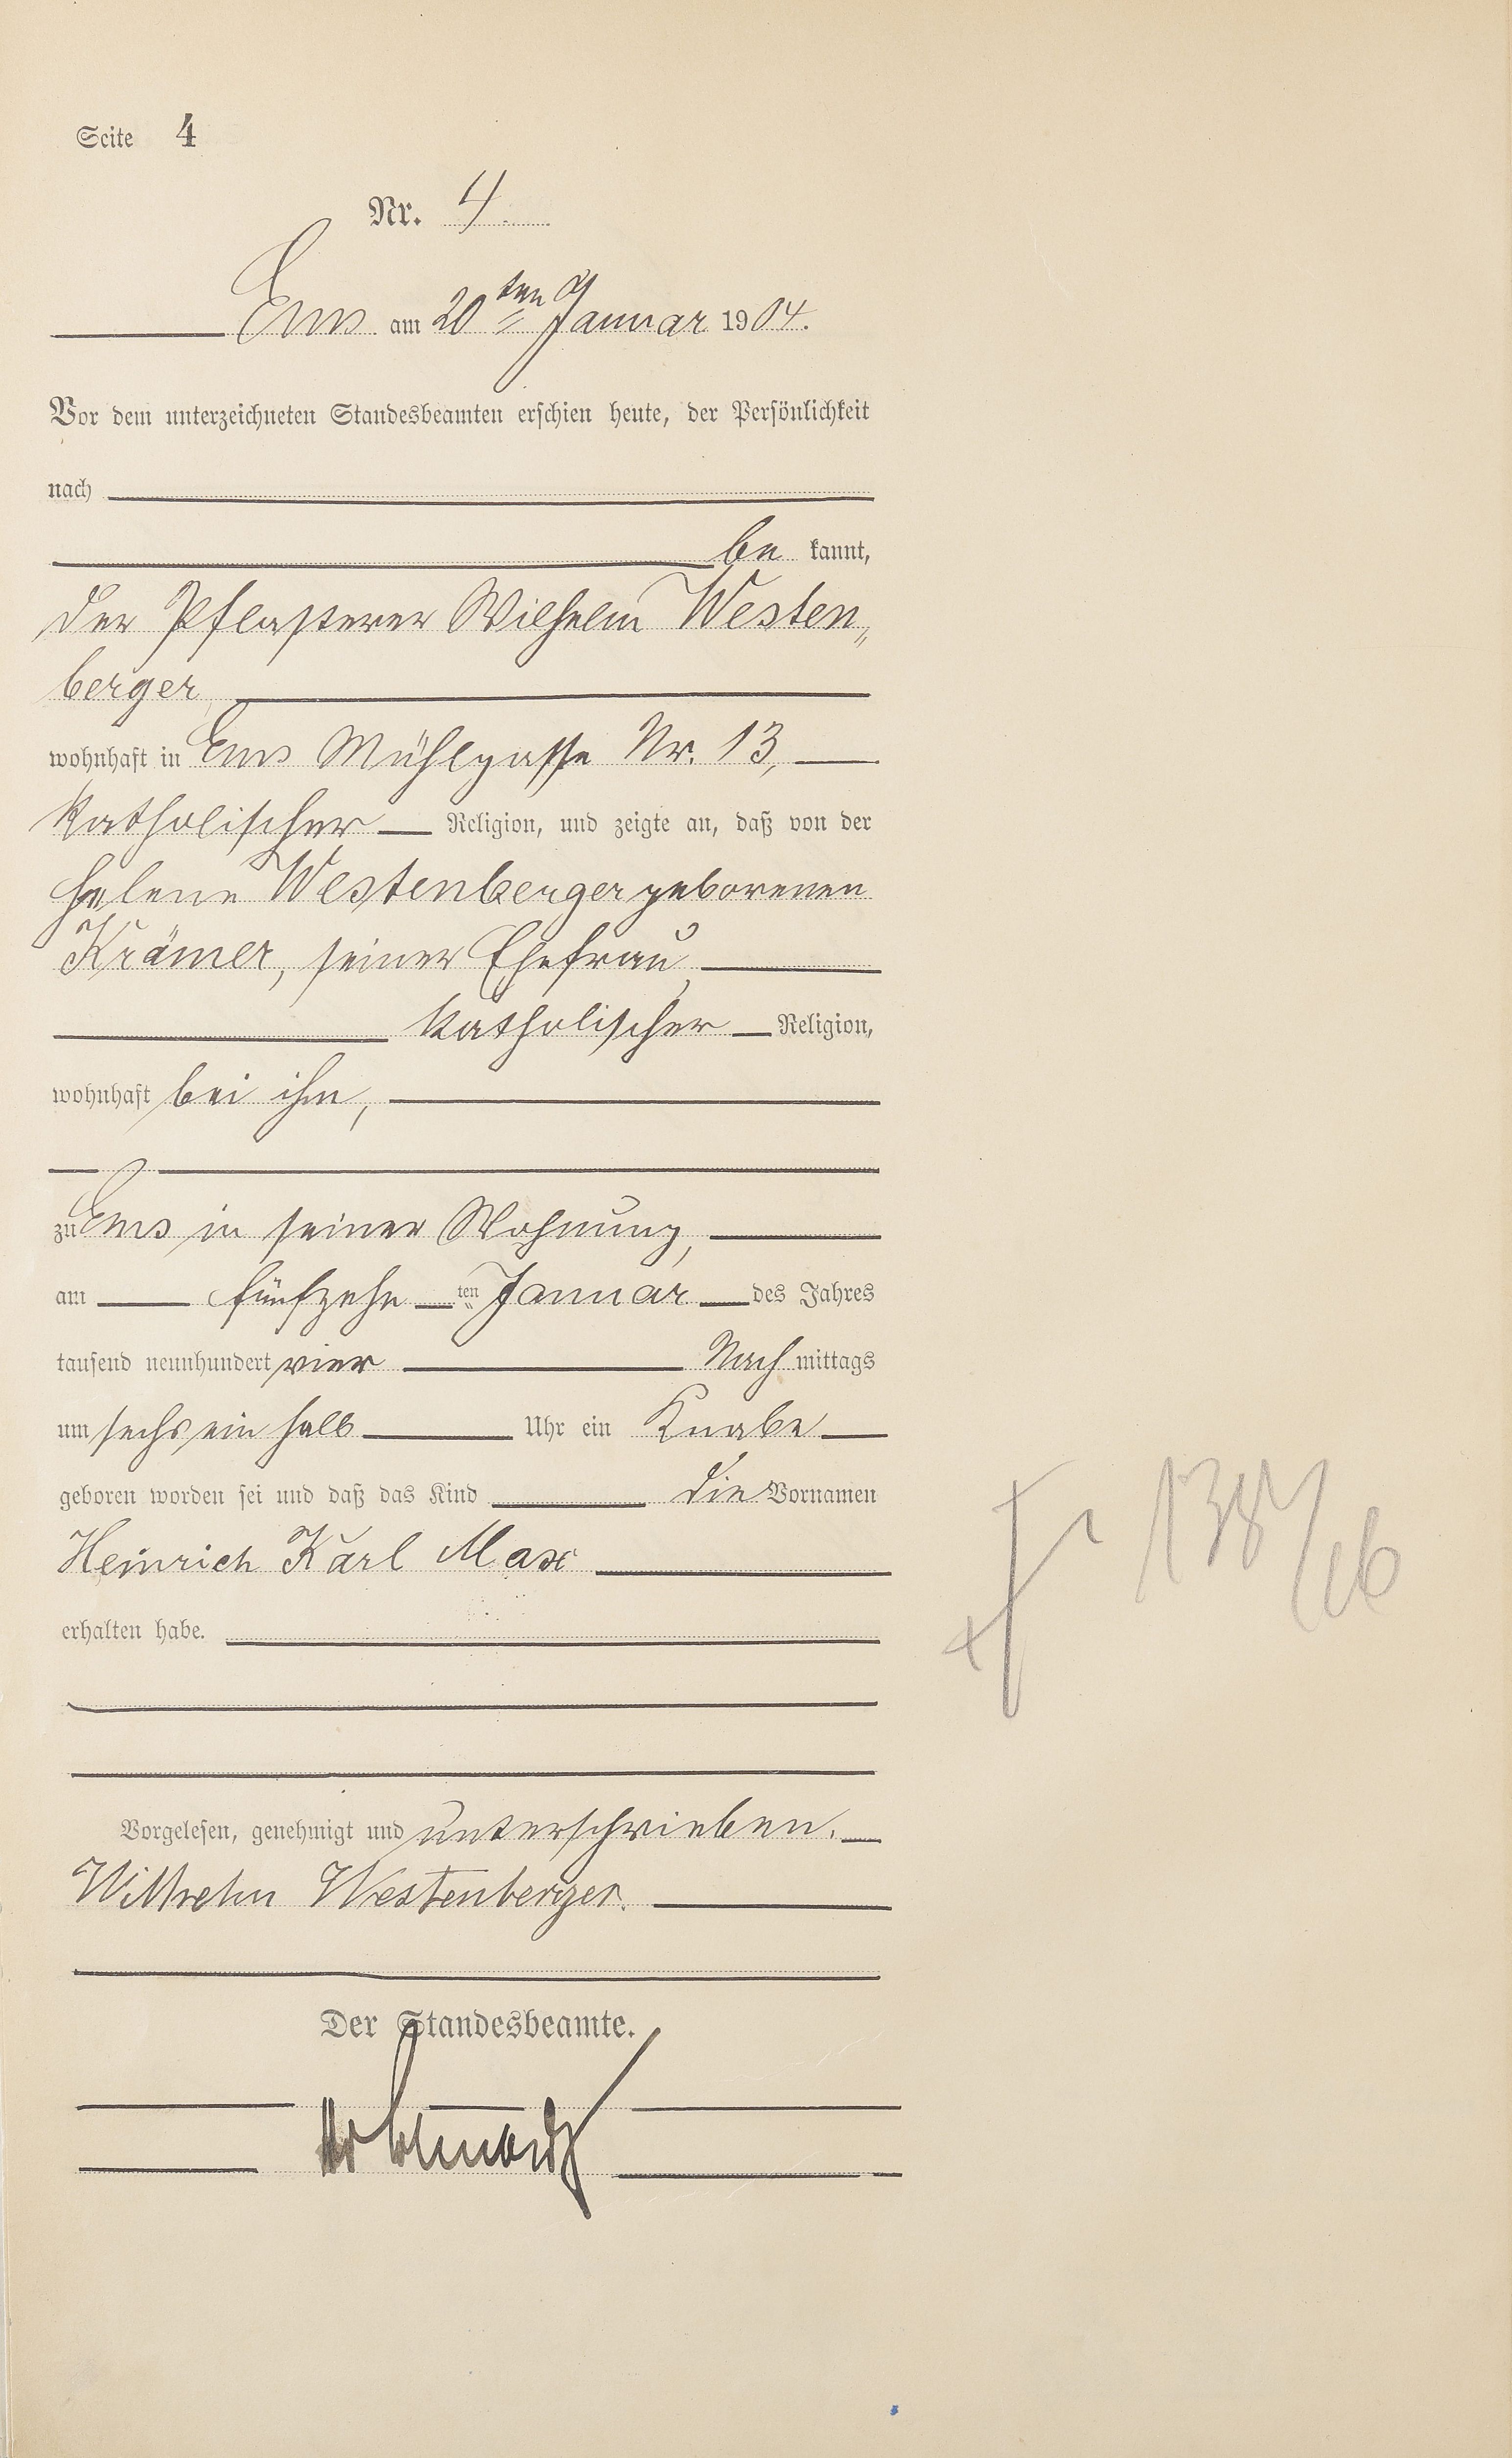 Seite 4
Nr. 4.
Ems am 20ten Januar 1904.
Vor dem unterzeichneten Standesbeamten erschien heute, der Persönlichkeit
nach
be kannt,
der Pflasterer Wilhelm Westen„
berger,
wohnhaft in Ems Mühlgasse Nr. 13,
katholischer Religion, und zeigte an, daß von der
Helene Westenberger geborenen
Krämer, seiner Ehefrau,
katholischer Religion,
wohnhaft bei ihm,
zu Ems in seiner Wohnung,
am fünfzehn ten Januar des Jahres
tausend neunhundert vier Nach mittags
um sechs ein halb Uhr ein Knabe
geboren worden sei und daß das Kind die Vornamen
Heinrich Karl Max
erhalten habe.
Vorgelesen, genehmigt und unterschrieben.
Wilhelm Westenberger.
Der Standesbeamte.